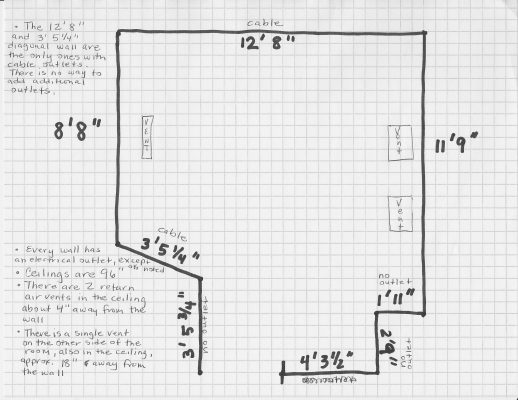 • The 12'8"
and 3'5¼"
diagonal wall are
the only ones with
cable outlets.
There is no way to
add additional
outlets.
cable
12'8"
8'8"
vent
vent
11'9"
vent
cable
3'5¼"
• Every wall has
an electrical outlet, except
as noted
• Ceilings are 96"
• There are 2 return
air vents in the ceiling
about 4" away from the
wall
• There is a single vent
on the other side of the
room, also in the ceiling,
approx. 18" away from
the wall
3'5¾"
no outlet
no
outlet
1'11"
2'9"
no
outlet
4'3½"